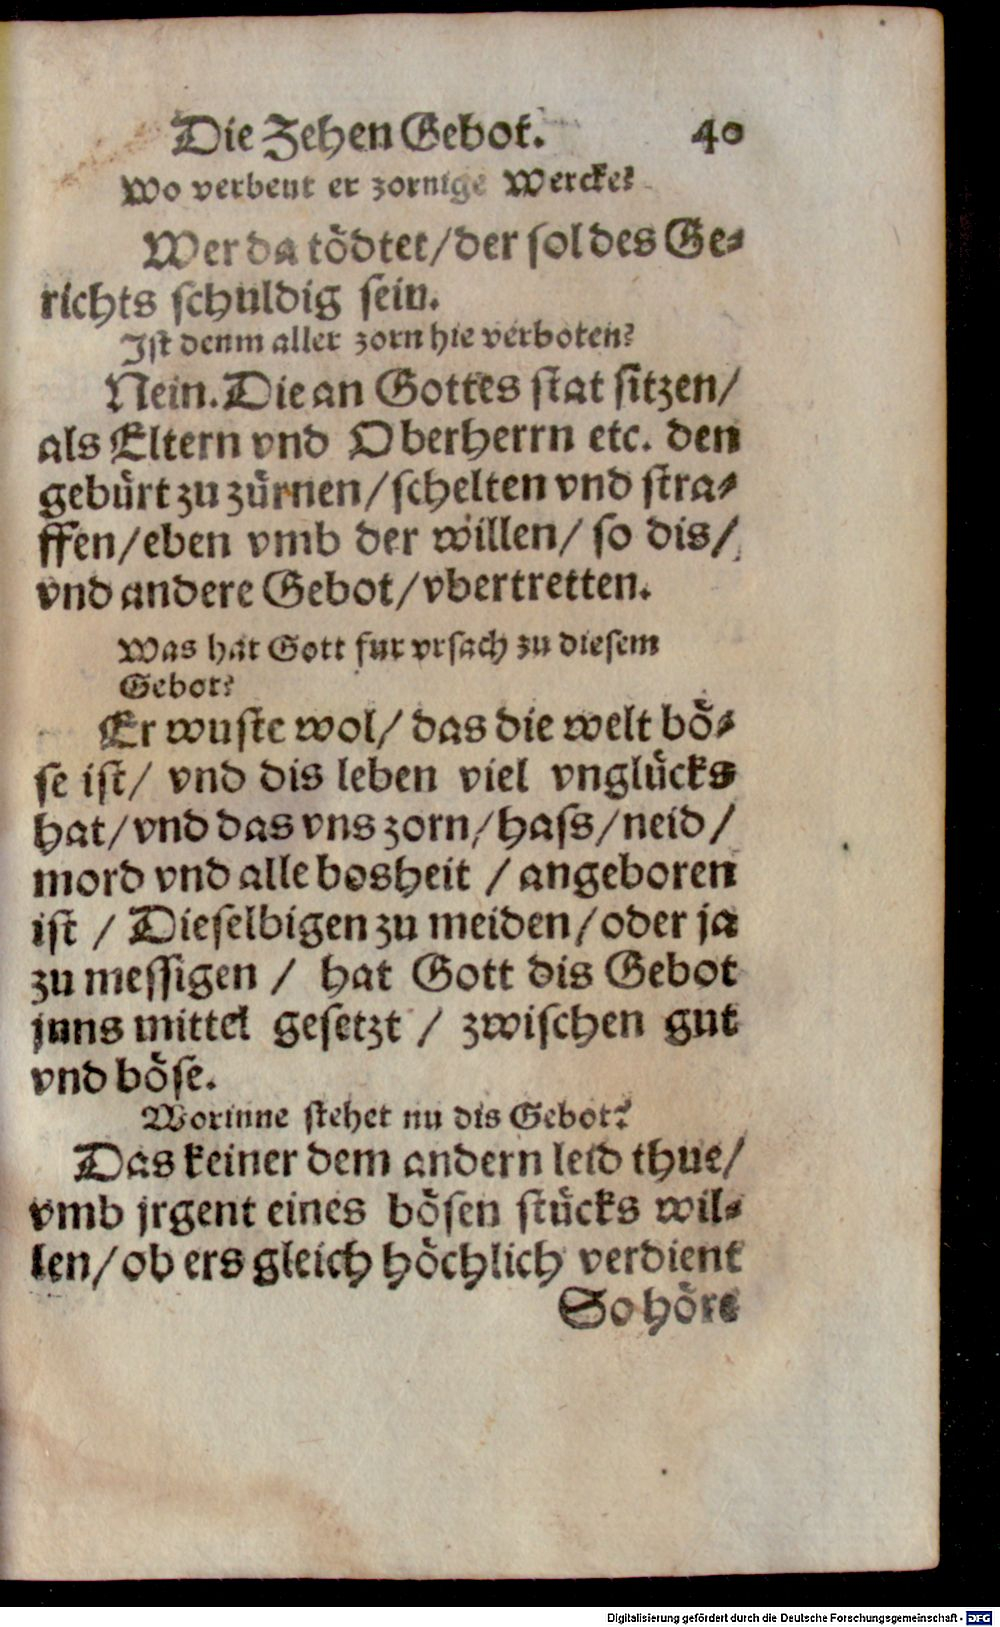 Die Zehen Gebot. 40
Wo verbeut er zornige Wercke?
Wer da tödtet/der sol des Ge-
richts schuldig sein.
Ist denm aller zorn hie verboten?
Nein. Die an Gottes stat sitzen/
als Eltern vnd Oberherrn etc. den
gebürt zu zürnen/schelten vnd stra-
ffen/eben vmb der willen/ so dis/
vnd andere Gebot/vbertretten.
Was hat Gott fur vrsach zu diesem
Gebot?
Er wuste wol/ das die welt bö-
se ist/ vnd dis leben viel vnglücks
hat/vnd das vns zorn/hass/neid/
mord vnd alle bosheit / angeboren
ist / Dieselbigen zu meiden/oder ja
zu messigen / hat Gott dis Gebot
jnns mittel gesetzt / zwischen gut
vnd böse.
Worinne stehet nu dis Gebot?
Das keiner dem andern leid thue/
vmb jrgent eines bösen stücks wil-
len/ob ers gleich höchlich verdient
So höre
Digitalisierung gefördert durch die Deutsche Forschungsgemeinschaft - DFG